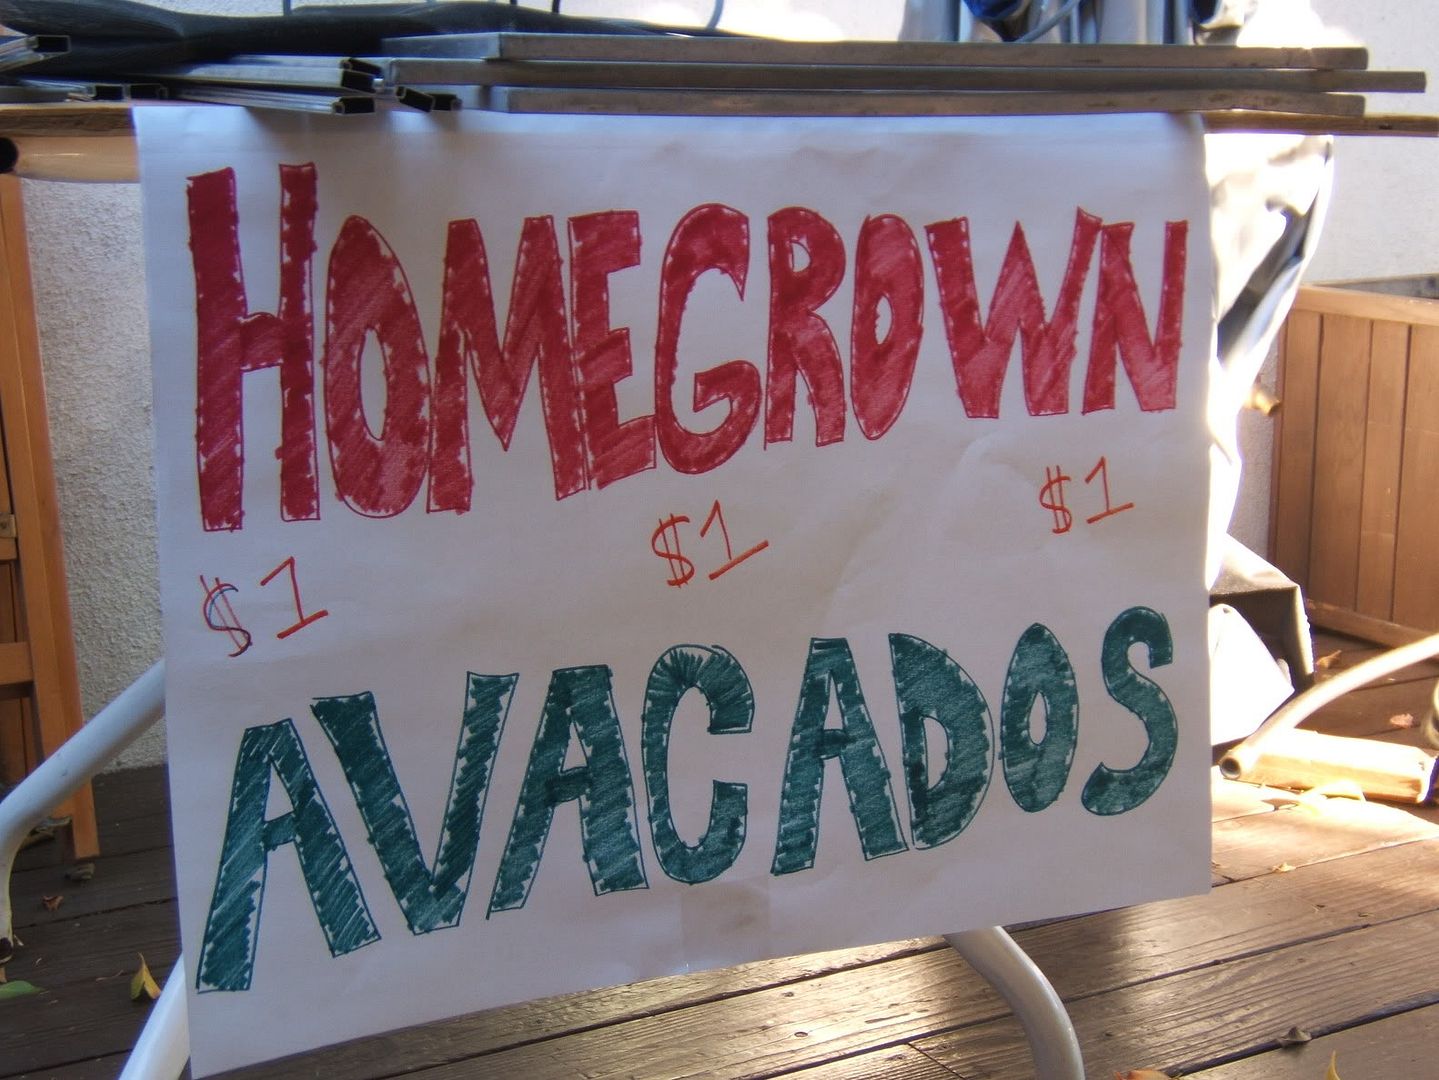 HOMEGROWN
$1 $1 $1
AVACADOS